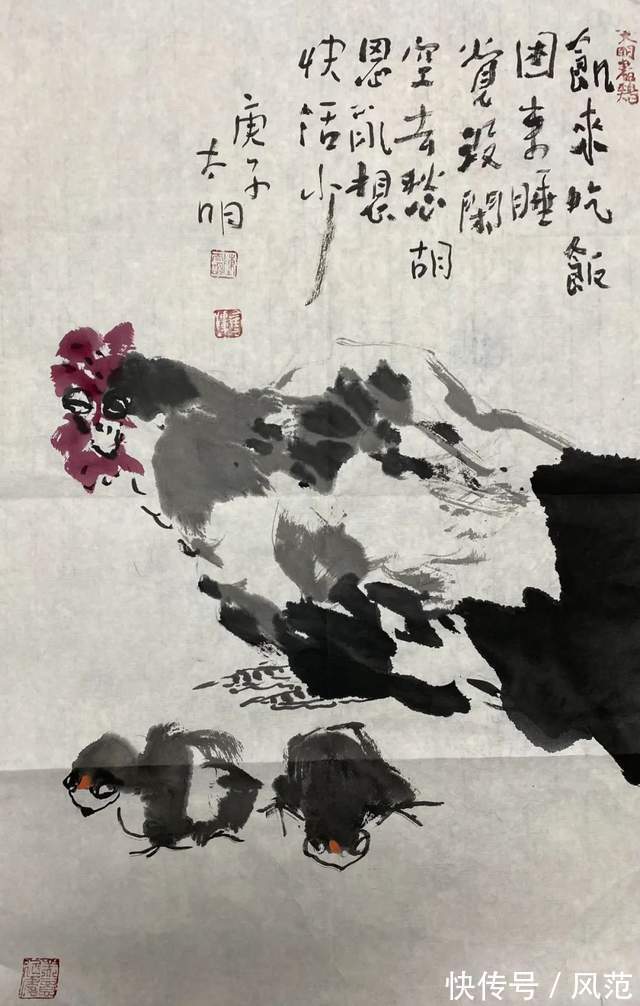 飢來吃飯
困來睡
覺没閑
空去愁胡
思亂想
快活少
庚子
太明
快传号／风范